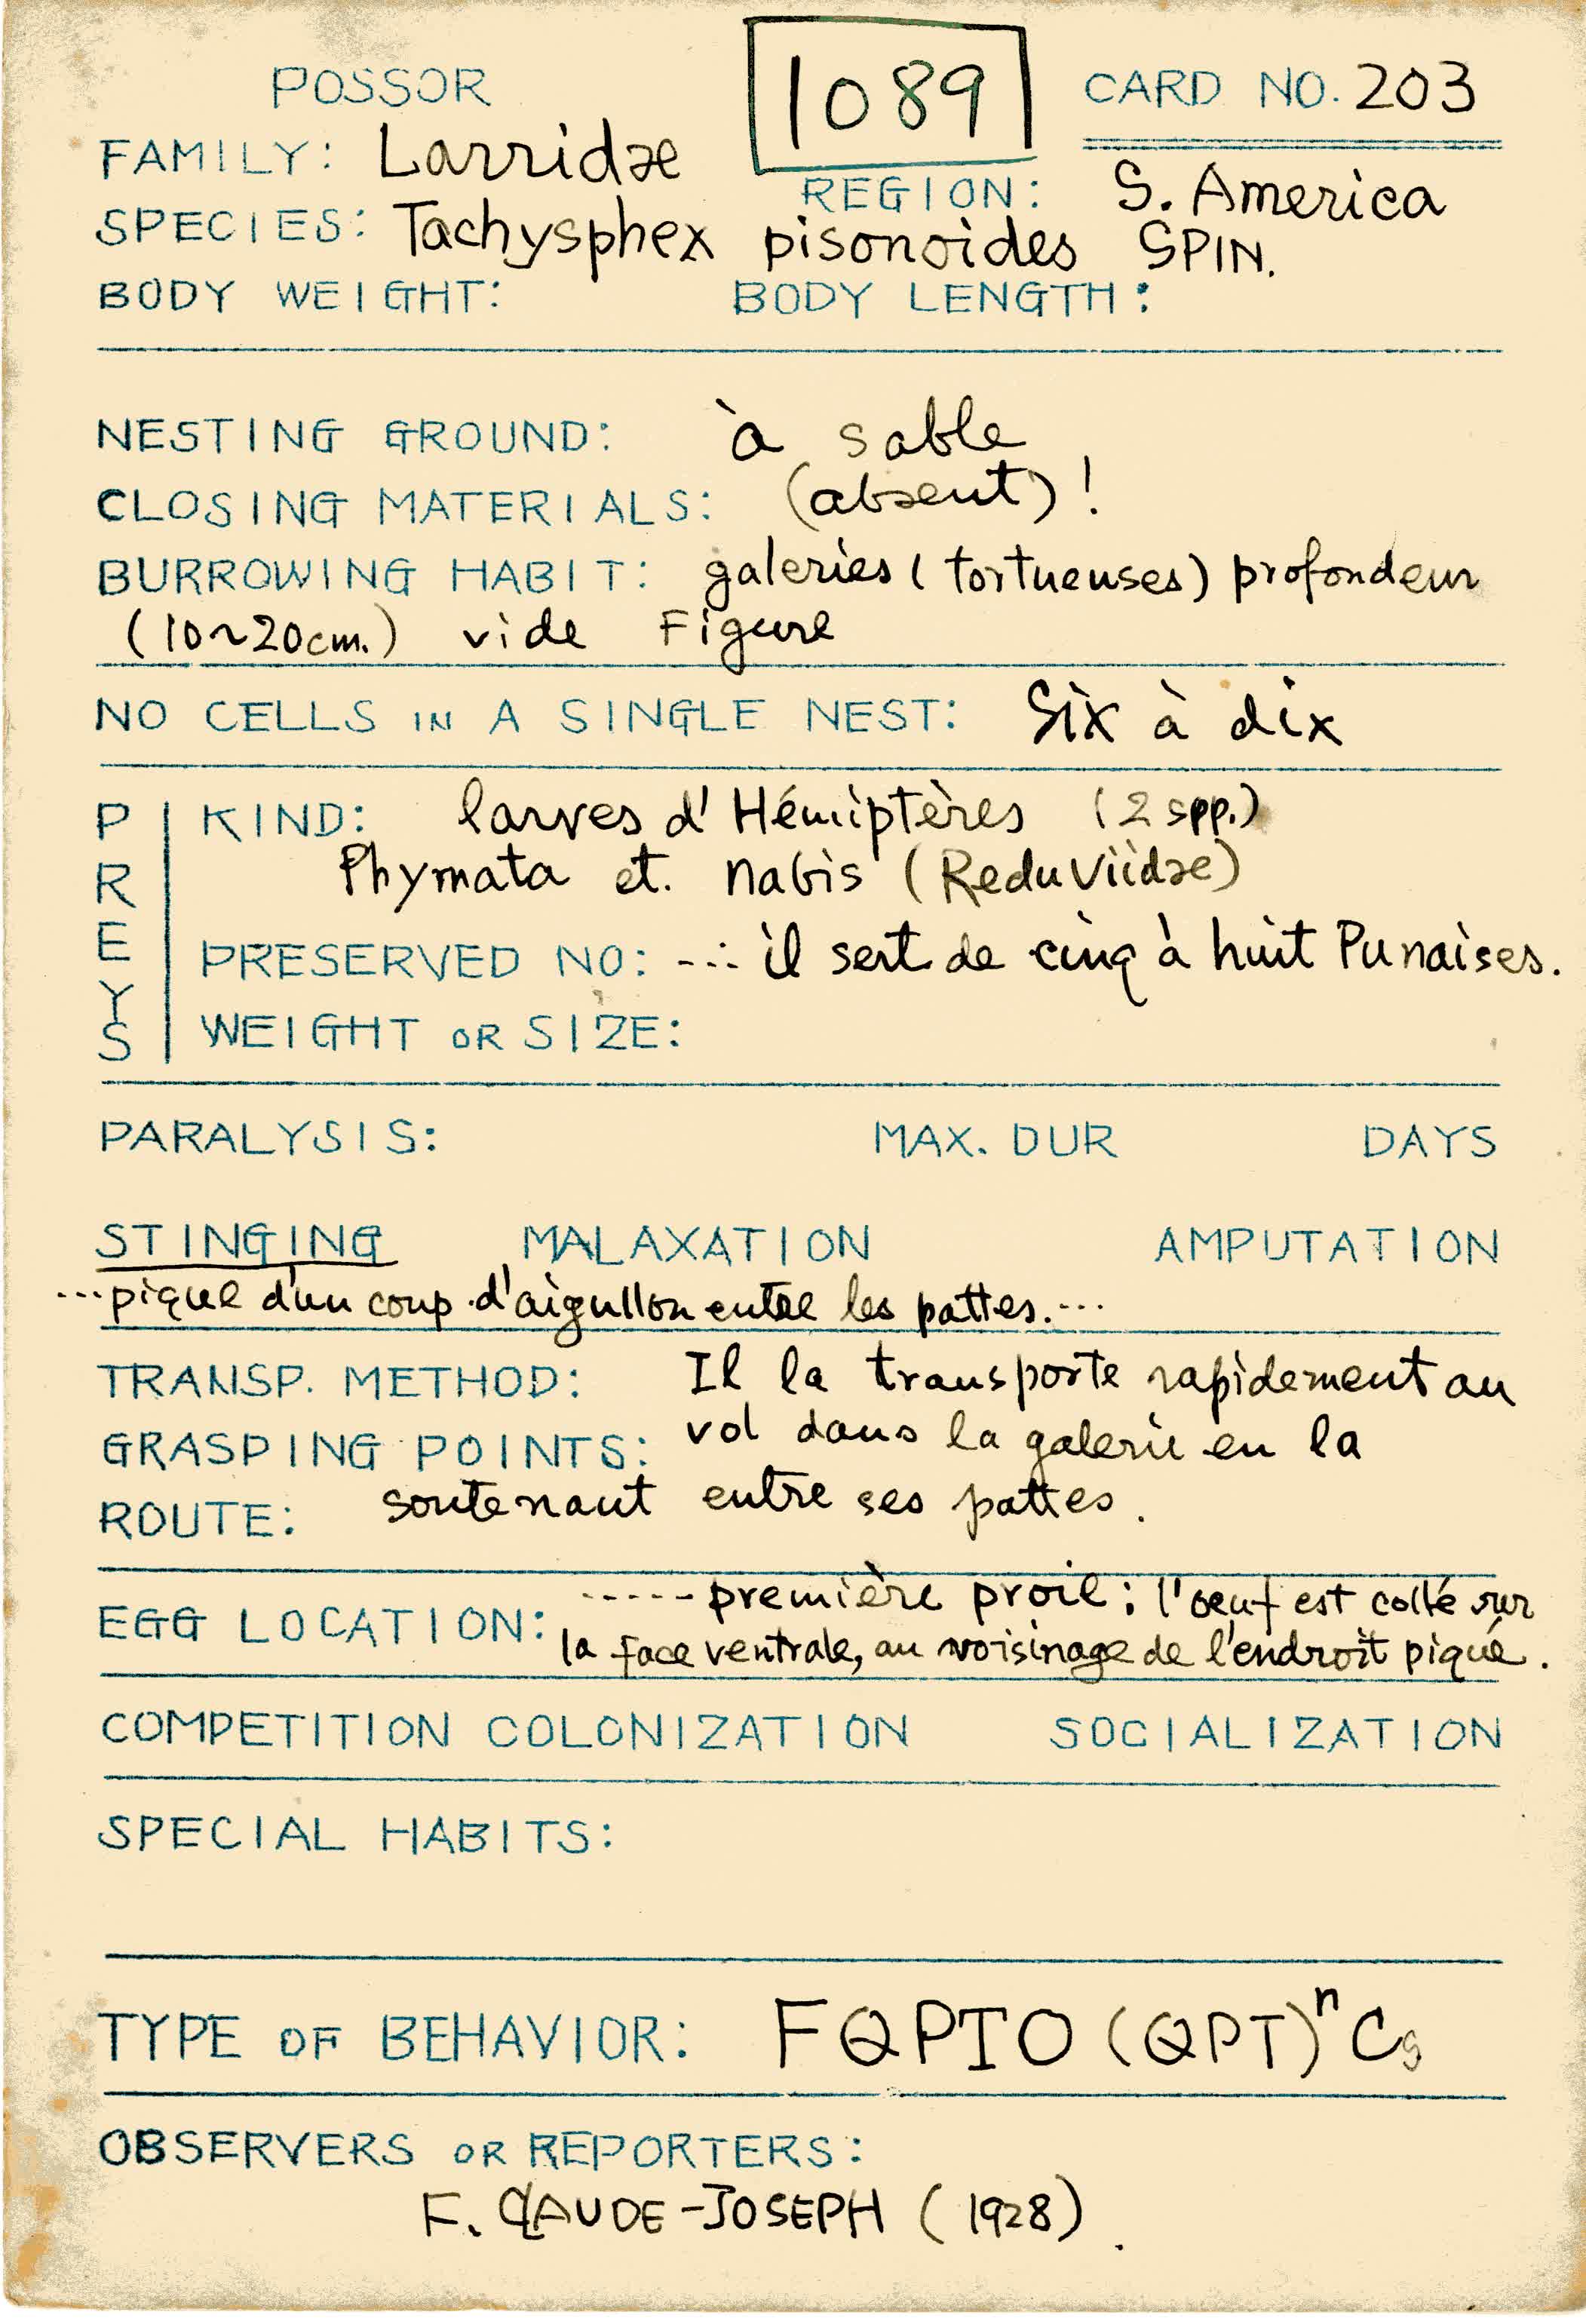 POSSOR 1089 CARD NO. 203
FAMILY: Larridae REGION: S. America
SPECIES: Tachysphex pisonoides SPIN.
BODY WEIGHT: BODY LENGTH:
NESTING GROUND: à sable
CLOSING MATERIALS: (absent)!
BURROWING HABIT: galeries (tortueuses) profondeur
(10~20cm.) vide Figure
NO CELLS IN A SINGLE NEST: Six à dix
PREYS
KIND: larves d'Hémiptères (2 spp.)
Phymata et. nabis (Reduviidae)
PRESERVED NO: --.: il sert de cinq à huit Punaises.
WEIGHT OR SIZE:
PARALYSIS: MAX. DUR DAYS
STINGING MALAXATION AMPUTATION
...pique d'un coup d'aigullon entre les pattes.---
TRANSP. METHOD: Il la transporte rapidement au
GRASPING POINTS: vol dans la galerie en la
ROUTE: soutenant entre ses pattes.
----- première proie; l'oeuf est collé sur
EGG LOCATION: la face ventrale, au voisinage de l'endroit piqué.
COMPETITION COLONIZATION SOCIALIZATION
SPECIAL HABITS:
TYPE OF BEHAVIOR: FQPTO(QPT)ⁿCs
OBSERVERS OR REPORTERS:
F. CLAUDE-JOSEPH (1928).